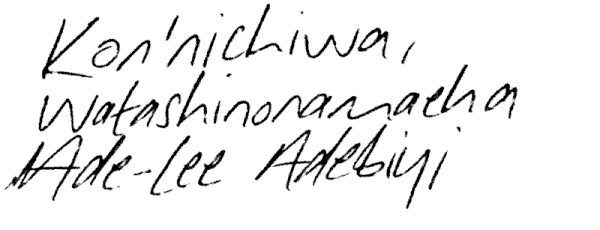 Kon'nichiwa,
watashinonamaeha
Ade-Lee Adebiyi